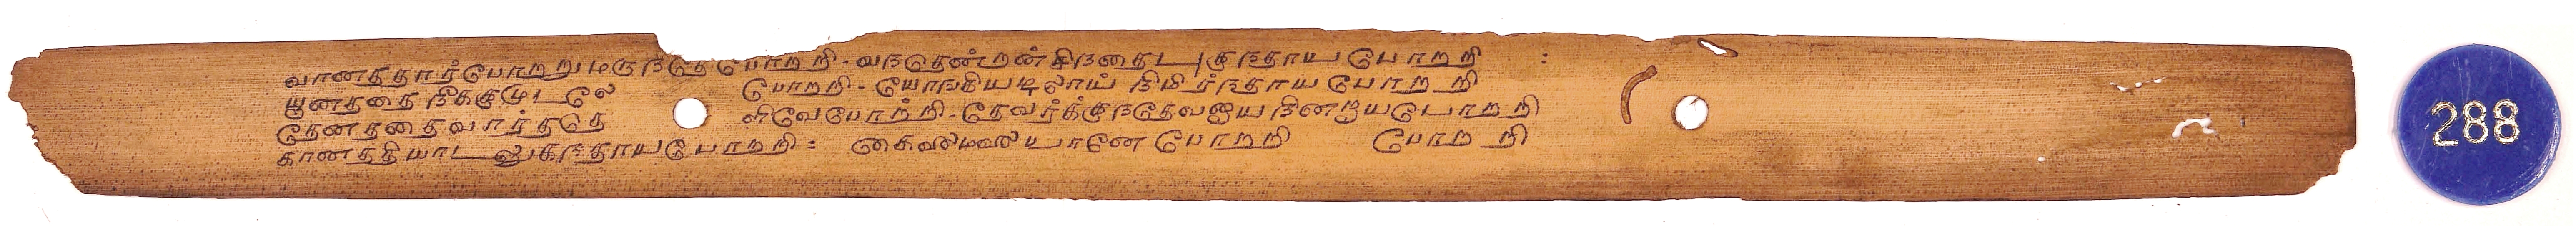 வானத்தார்போற்றுமருந்தேபோற்றி - வந்தென்றன்சிந்தைபுகுந்தாய்போற்றி :
யூனத்தைநீக்குமுடலே போற்றி - யோங்கியழலாய் நிமிர்ந்தாய்போற்றி
தேனத்தைவார்த்ததெ ளிவேபோற்றி - தேவர்க்குந்தேவனாய்நின்றாய்போற்றி
கானத்தீயாடலுகந்தாய்போற்றி : கைலைமலையானே போற்றி போற்றி
288